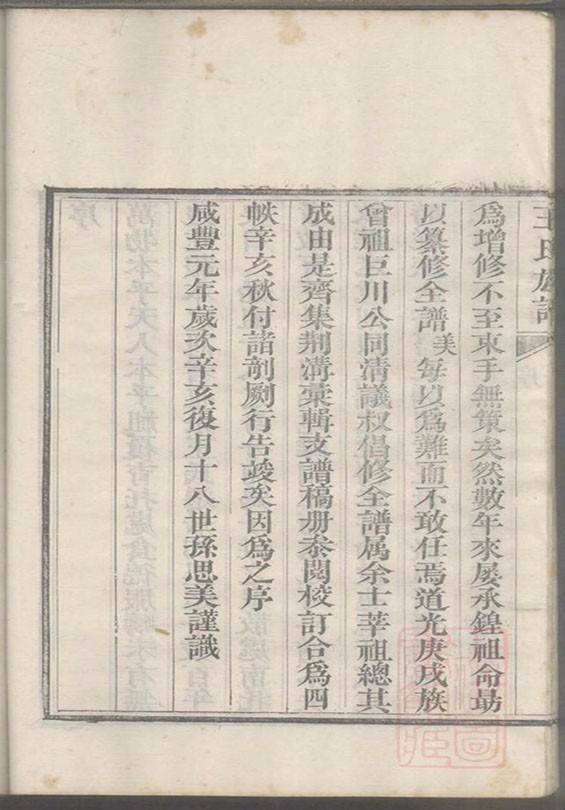 王氏族譜
爲增修不至束手無策矣然數年來屡承鍠祖命勗
以纂修全譜美每以爲難而不敢任焉道光庚戌族
曾祖巨川公同清議叔倡修全譜属余士莘祖總其
成由是齊集荆溝彙輯支譜稿册叅閱校訂合爲四
帙辛亥秋付諸剞劂行告竣矣因爲之序
咸豐元年歲次辛亥復月十八世孫思美謹識